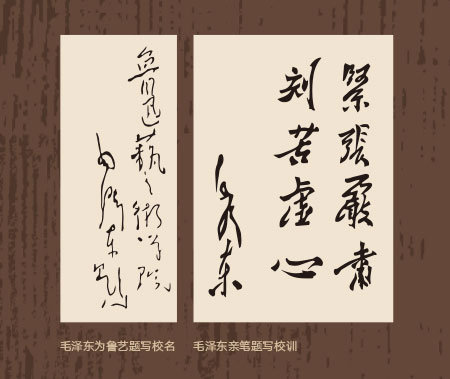 魯迅藝術学院
毛澤東題
緊張嚴肅
刻苦虛心
毛澤東
毛泽东为鲁艺题写校名
毛泽东亲笔题写校训